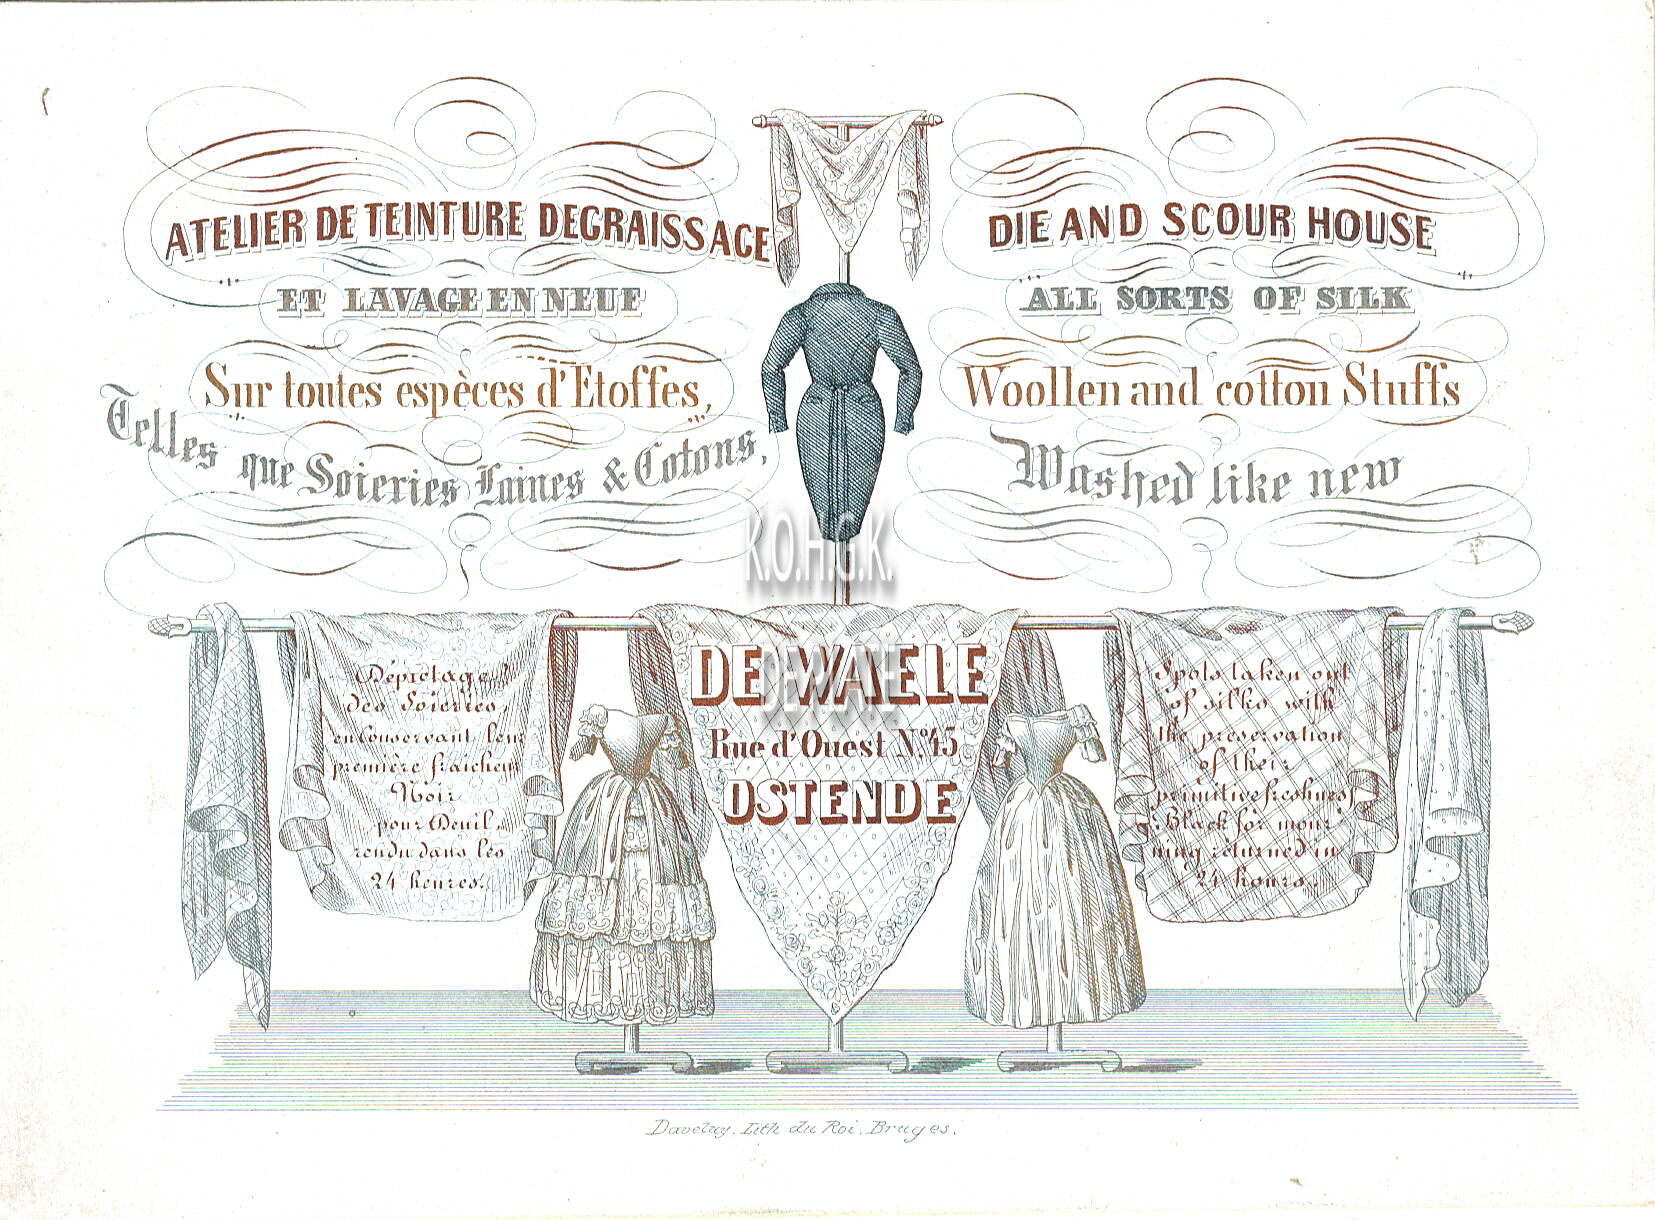 ATELIER DE TEINTURE DEGRAISSAGE
ET LAVAGE EN NEUF
Sur toutes espèces d'Etoffes,
Telles que Soieries Laines & Cotons,
DIE AND SCOUR HOUSE
ALL SORTS OF SILK
Woollen and cotton Stuffs
Washed like new
K.O.H.G.K.
DEPLATE
Dépictage
des Soieries,
en Conservant leur
première fraicheur
Noir
pour Deuil,
rendu dans les
24 heures.
DE WAELE
Rue d'Ouest N.º 43
OSTENDE
Spots taken out
of silks with
the preservation
of their
primitive freshness
Black for mour
ning returned in
24 hours.
Daveluy, Lith du Roi, Bruges.